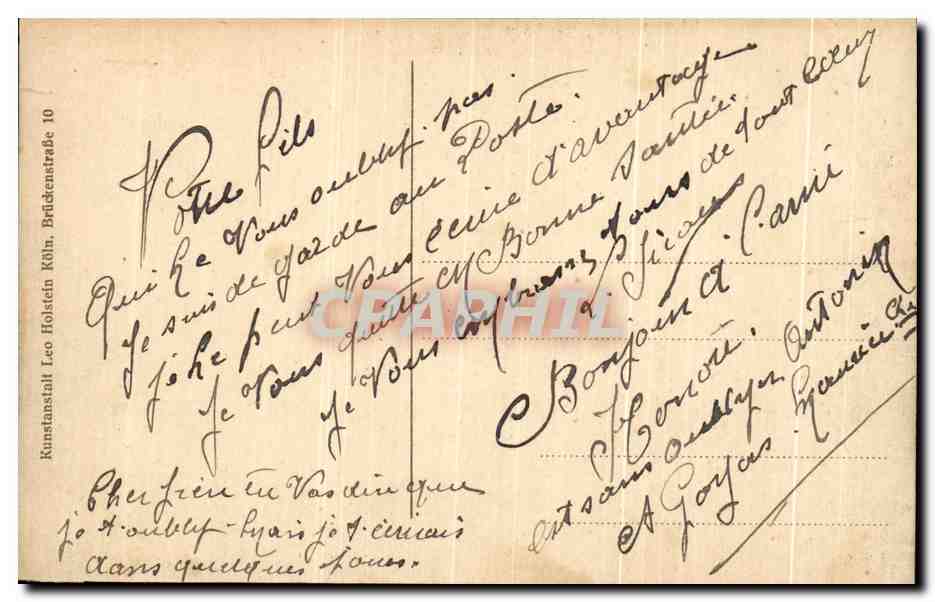 Kunstanstalt Leo Holstein Köln, Brückenstraße 10
Votre fils
Qui ne vous oublif pas.
Je suis de garde au Poste.
je ne peut Vous écrire d'avantage
Je Vous quitte en Bonne Santée.
Je Vous embrasse tous de tout cœur
Bonjour a Cami
Honoré.
et sans oublyer Antonin
et Goyas. Maurice
Cher frère tu Vas dire que
je t'oublif mais je t'écrirais
dans quelques jours.
CPAPHIL